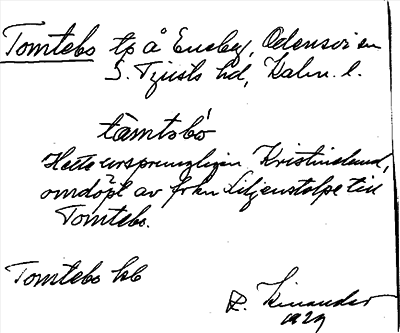 Tomtebo tp å Eneby, Odensvi sn
S. Tjusts hd, Kalm. l.
tåmtebó
Hette ursprungligen Kristinelund,
omdöpt av frkn Liljenstolpe till
Tomtebo.
Tomtebo kb
R. Linander
1929